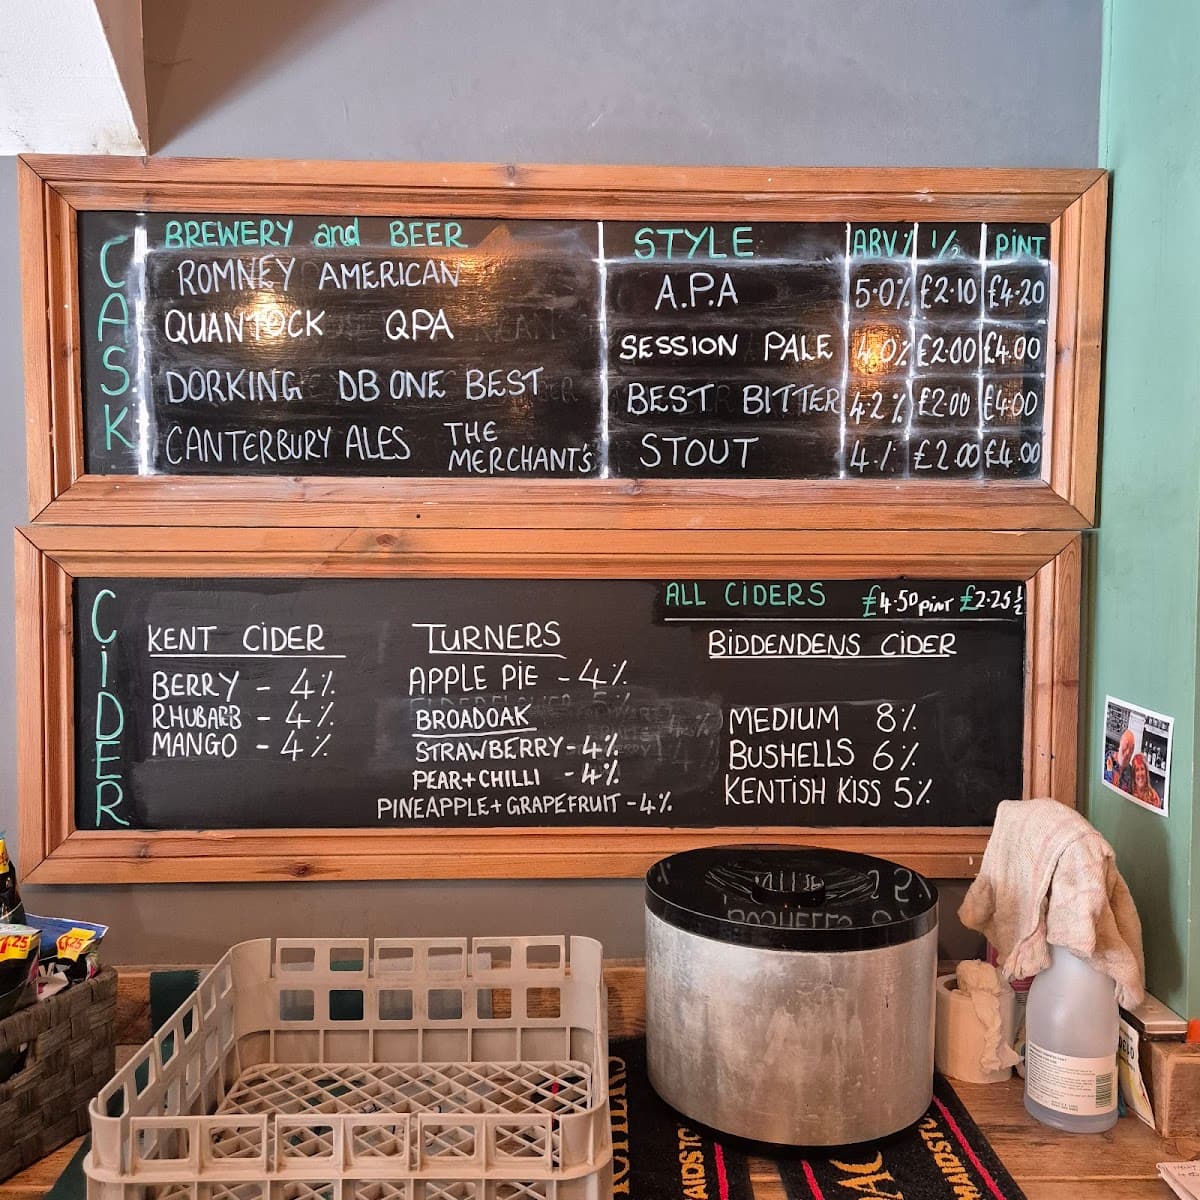 CASK
BREWERY and BEER STYLE ABV% 1/2 PINT
ROMNEY AMERICAN A.P.A 5.0% £2.10 £4.20
QUANTOCK QPA SESSION PALE 4.0% £2.00 £4.00
DORKING DB ONE BEST BEST BITTER 4.2% £2.00 £4.00
CANTERBURY ALES THE MERCHANT'S STOUT 4.% £2.00 £4.00
CIDER
ALL CIDERS £4.50 PINT £2.25 1/2
KENT CIDER
BERRY - 4%
RHUBARB - 4%
MANGO - 4%
TURNERS
APPLE PIE - 4%
BROADOAK
STRAWBERRY - 4%
PEAR + CHILLI - 4%
PINEAPPLE + GRAPEFRUIT - 4%
BIDDENDENS CIDER
MEDIUM 8%
BUSHELLS 6%
KENTISH KISS 5%
£1.25
MAIDSTO